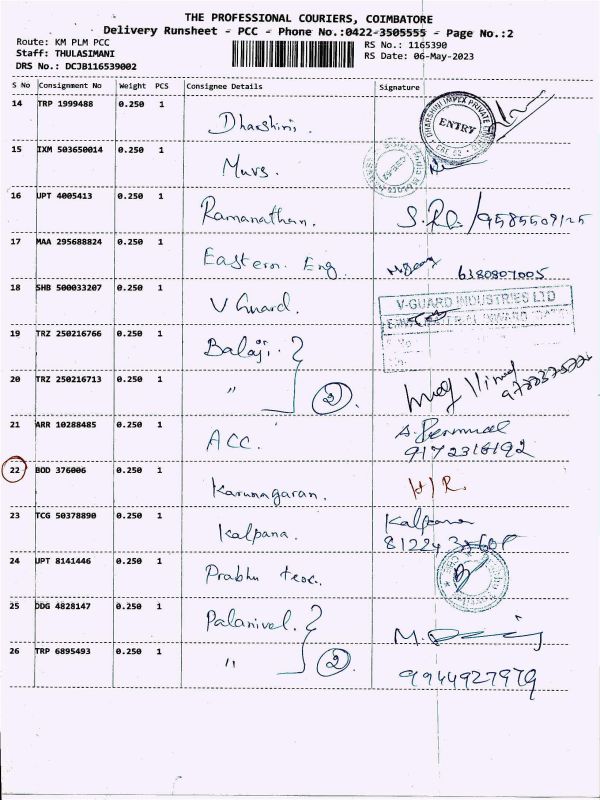 THE PROFESSIONAL COURIERS, COIMBATORE
Delivery Runsheet - PCC - Phone No.:0422-3505555 - Page No.:2
Route: KM PLM PCC
Staff: THULASIMANI
DRS No.: DCJB116539002
RS No.: 1165390
RS Date: 06-May-2023
S No Consignment No Weight PCS Consignee Details Signature
14 TRP 1999488 0.250 1 Dharshini.
DHARSHINI IMPEX PRIVATE
ENTRY
15 IXM 503650014 0.250 1 Murs.
16 UPT 4005413 0.250 1 Ramanathan.
17 MAA 295688824 0.250 1 Eastern. Eng. 6380807005
18 SHB 500033207 0.250 1 V Guard.
V-GUARD INDUSTRIES LTD
19 TRZ 250216766 0.250 1 Balaji.
20 TRZ 250216713 0.250 1 " 2
21 ARR 10288485 0.250 1 ACC. A. Perumal
9172316192
22 BOD 376006 0.250 1 Karunagaran. H/R.
23 TCG 50378890 0.250 1 Kalpana. Kalpana
81224
24 UPT 8141446 0.250 1 Prabhu tex.
25 DDG 4828147 0.250 1 Palanivel. M.
26 TRP 6895493 0.250 1 " 2 9944927979